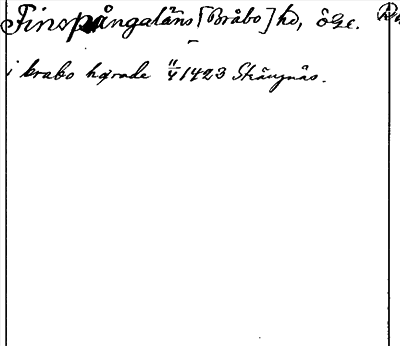 Finspångaläns [Bråbo] hd, ÖGe.
i brabo hærade 11/4 1423 Strängnäs.